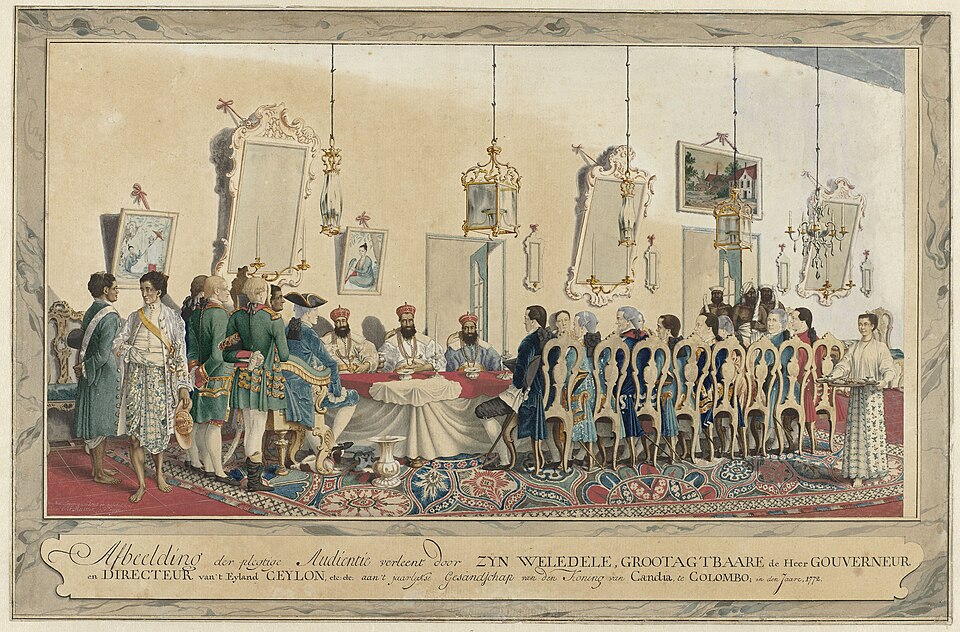 Afbeelding der plegtige Audientie verleent door ZYN WELEDELE, GROOTAGTBAARE de Heer GOUVERNEUR
en DIRECTEUR van't Eyland CEYLON, etc: etc: aan't jaarlykse Gesandschap van den Koning van Candia, te COLOMBO; in den Jaare, 1772.